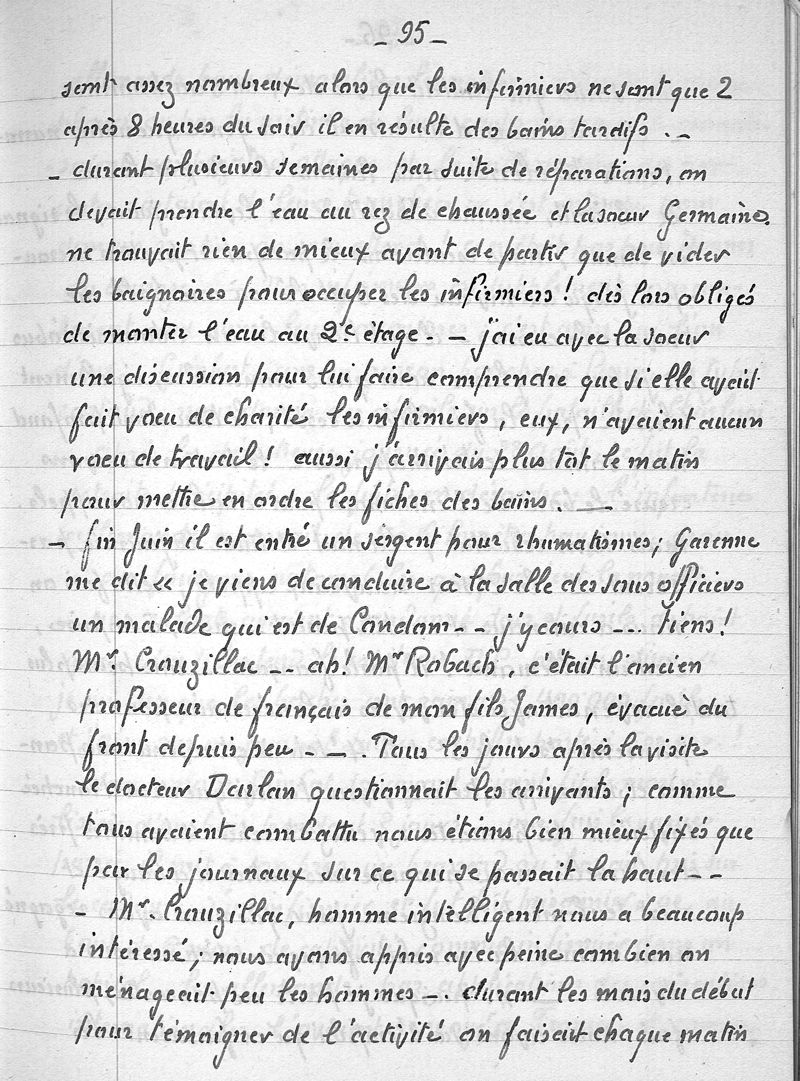 - 95 -
sont assez nombreux alors que les infirmiers ne sont que 2
après 8 heures du soir il en résulte des bains tardifs . -
- durant plusieurs semaines par suite de réparations, on
devait prendre l'eau au rez de chaussée et la soeur Germaine
ne trouvait rien de mieux avant de partir que de vider
les baignoires pour occuper les infirmiers ! dès lors obligés
de monter l'eau au 2e étage. - j'ai eu avec la soeur
une discussion pour lui faire comprendre que si elle avait
fait voeu de charité les infirmiers, eux, n'avaient aucun
voeu de travail ! aussi j'arrivais plus tôt le matin
pour mettre en ordre les fiches des bains . -
- fin Juin il est entré un sergent pour rhumatismes ; Garenne
me dit « je viens de conduire à la salle des sous officiers
un malade qui est de Condom - - j'y cours - - - tiens !
Mr. Crouzillac - - ah ! Mr Robach, c'était l'ancien
professeur de français de mon fils James, évacué du
front depuis peu - - . Tous les jours après la visite
le docteur Darlan questionnait les arrivants ; comme
tous avaient combattu nous étions bien mieux fixés que
par les journaux sur ce qui se passait la haut - -
- Mr. Crouzillac, homme intelligent nous a beaucoup
intéressé ; nous avons appris avec peine combien on
ménageait peu les hommes - . durant les mois du début
pour témoigner de l'activité on faisait chaque matin